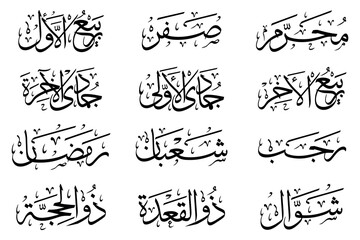 مُحَرَّم صَفَر رَبِيعُ الأَوَّل
رَبِيعُ الآخِر جُمَادَى الأُولَى جُمَادَى الآخِرَة
رَجَب شَعْبَان رَمَضَان
شَوَّال ذُو القَعْدَة ذُو الحِجَّة